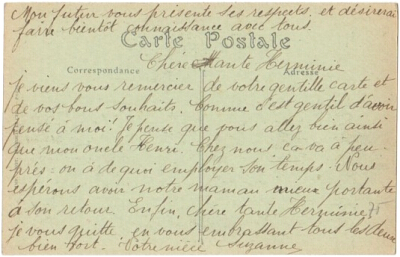 Mon futur vous présente ses respects, et désirerait
faire bientôt connaissance avec tous.
Carte Postale
Chère tante Herminie
Correspondance
Adresse
Je viens vous remercier de votre gentille carte et
de vos bons souhaits. Comme c'est gentil d'avoir
pensé à moi! Je pense que vous allez bien ainsi
que mon oncle Henri. Chez nous ca-va à peu-
près: on a de quoi employer son temps. Nous
espérons avoir notre maman mieux portante
à son retour. Enfin, chère tante Herminie,
je vous quitte en vous embrassant tous les deux
bien fort. Votre nièce Suzanne